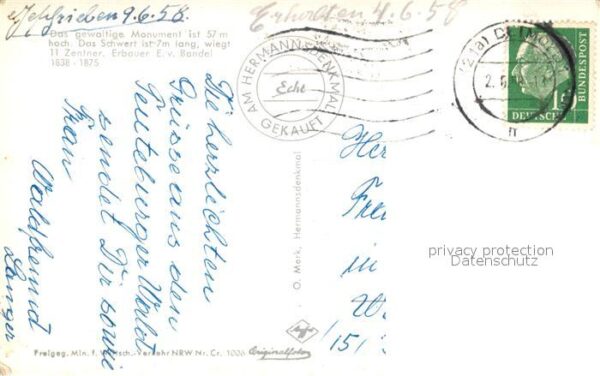 Geschrieben 9.6.58.
Erhalten 4.6.58
Das gewaltige Monument ist 57 m
hoch. Das Schwert ist 7m lang, wiegt
11 Zentner. Erbauer E. v. Bandel
1838 - 1875.
AM HERMANNSDENKMAL
Echt
GEKAUFT
(21a) DETMOLD
DEUTSCHE
BUNDESPOST
Die herzlichsten
Grüsse aus den
Teuteburger Wald
sendet Dir sowie
Frau
Waldfreund
Langer
O. Merk, Hermannsdenkmal
Her
in
W
privacy protection
Datenschutz
Agfa
Originalfoto
Freigeg. Min. f. Wirtsch.-Verkehr NRW Nr. Cr. 1006